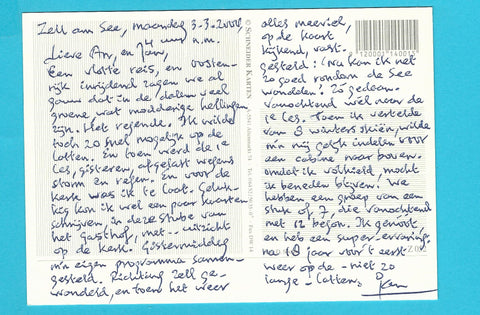 Zell am See, maandag 3-3-2000,
4 uur n.m.
Lieve An, en Jan,
Een vlotte reis, en oosten-
rijk inrijdend zagen we al
gauw dat in de dalen veel
groene, wat modderige hellingen
zijn. Het regende. Ik wilde
toch zo snel mogelijk op de
latten. En toen werd de 1e
les, gisteren, afgelast wegens
storm en regen. En voor de
kerk was ik te laat. Geluk-
kig kon ik wel een paar kaarten
schrijven in deze stube van
het Gasthof, met -- uitzicht
op de kerk. Gistermiddag
m'n eigen programma samen-
gesteld. Richting Zell ge-
wandeld, en toen het weer
© SCHNEIDER KARTEN
9120001140015
alles meeviel,
op de kaart
kijkend, vast-
gesteld: Nu kan ik net
zo goed rondom de See
wandelen! Zo gedaan.
Vanochtend wel naar de
1e les. Toen ik vertelde
van 8 winters skiën, wilde
m'n mij gelijk indelen voor
een cabine naar boven.
omdat ik volhield, mocht
ik beneden blijven. We
hebben een groep van een
stuk of 7, die vanochtend
met 12 begon. Ik genoot,
en heb een super-ervaring,
na 18 jaar voor 't eerst
weer op de - niet zo
lange - latten.